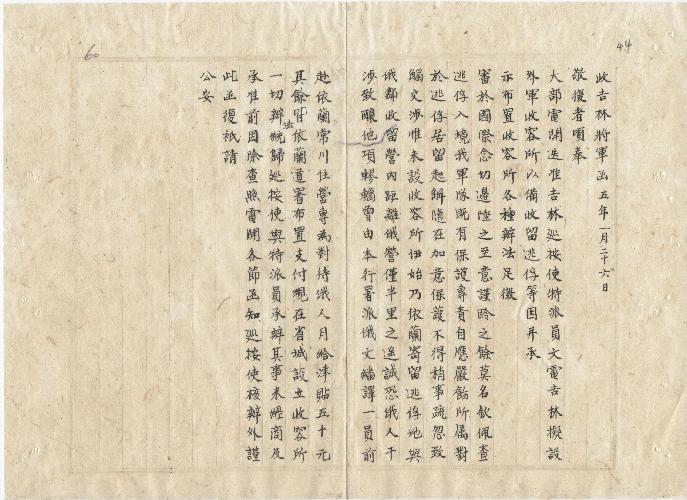 44
60
收吉林將軍函五年一月二十六日
敬復者頃奉
大部電開迭准吉林巡按使特派員文電吉林擬設
外軍收容所以備收留逃俘等因并承
示布置收容所各種辦法足徵
審於國際念切邊陲之至意謹聆之餘莫名欽佩查
逃俘入境我軍隊既有保護專責自應嚴飭所屬對
於逃俘居留起解隨在加意保護不得稍事疏忽致
觸交涉惟未設收容所伊始乃依蘭寄留逃俘地與
俄鄰收留營內距離俄營僅半里之遙誠恐俄人干
涉致釀他項轇轕曾由本行署派俄文繙譯一員前
赴依蘭常川住營專為對待俄人月給津貼五十元
其餘皆依蘭道署布置支付現在省城設立收容所
一切辦法統歸巡按使與特派員承辦其事未經商及
承准前因除查照電開各節函知巡按使核辦外謹
此函復祇請
公安